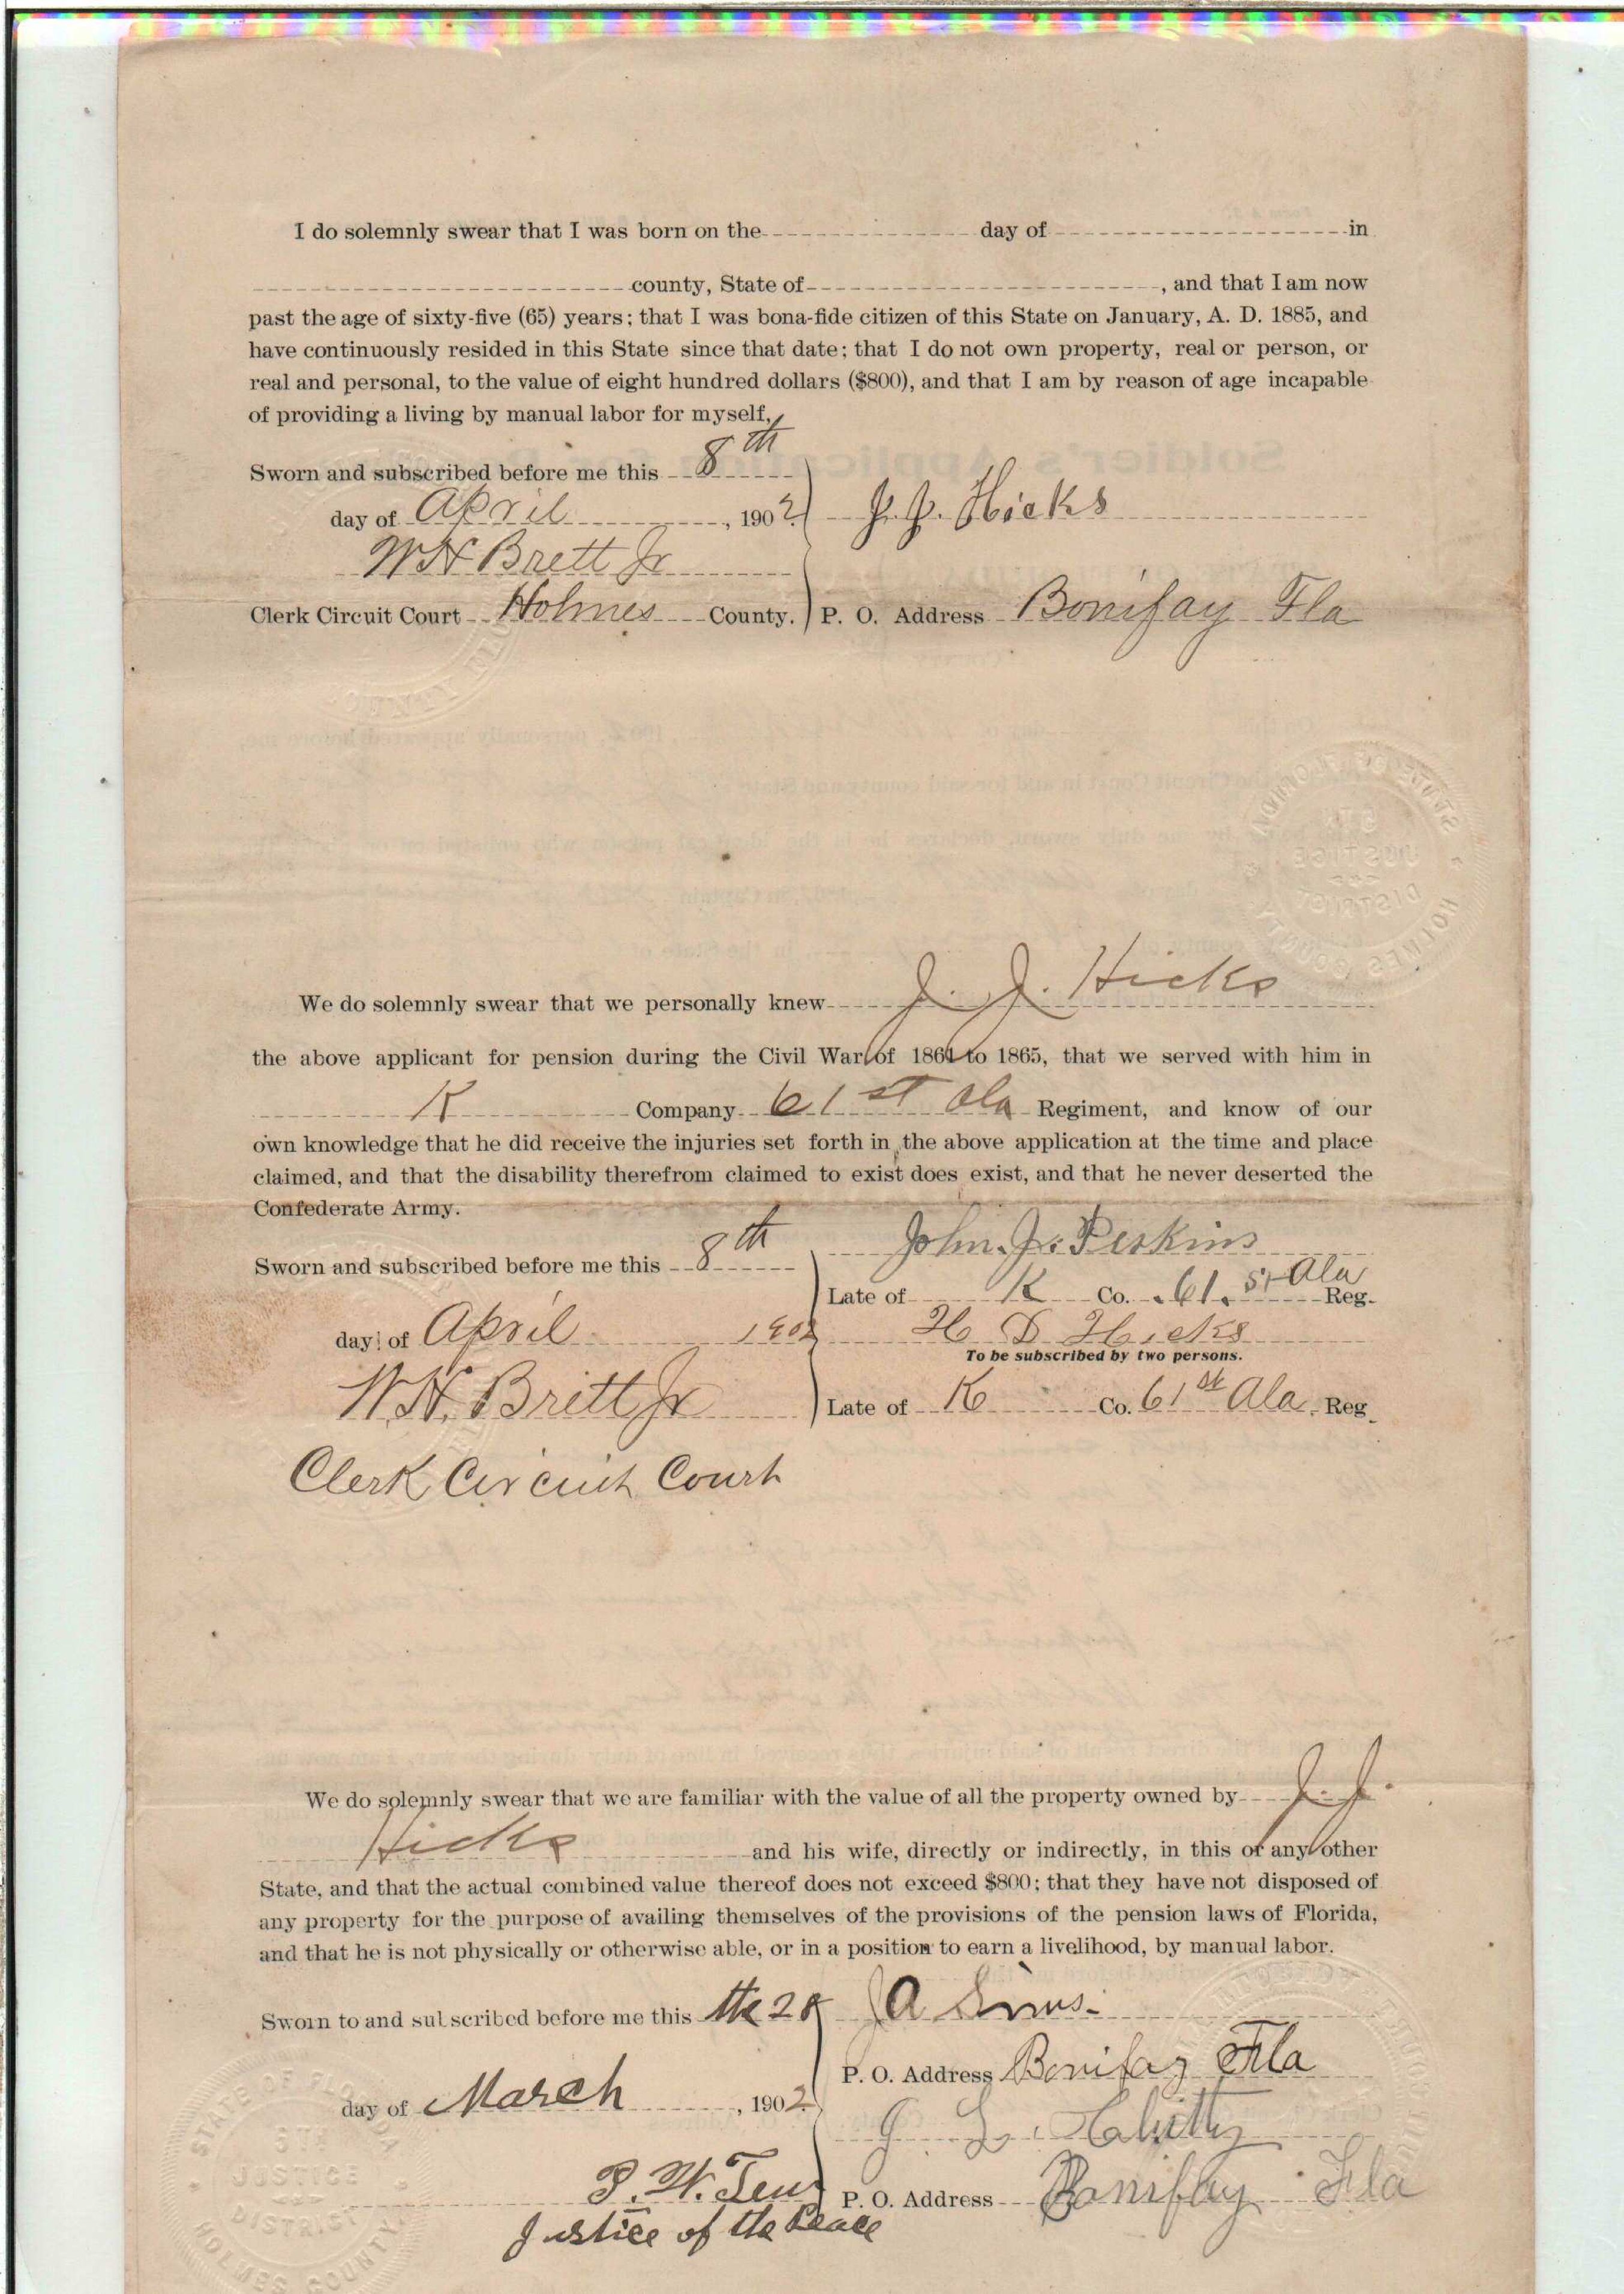 I do solemnly swear that I was born on the day of in
county, State of , and that I am now
past the age of sixty-five (65) years; that I was bona-fide citizen of this State on January, A. D. 1885, and
have continuously resided in this State since that date; that I do not own property, real or person, or
real and personal, to the value of eight hundred dollars ($800), and that I am by reason of age incapable
of providing a living by manual labor for myself,
Sworn and subscribed before me this 8th
day of April , 1902 J. J. Hicks
W H Brett Jr
Clerk Circuit Court Holmes County. P. O. Address Bonifay Fla
We do solemnly swear that we personally knew J. J. Hicks
the above applicant for pension during the Civil War of 1861 to 1865, that we served with him in
K Company 61st Ala Regiment, and know of our
own knowledge that he did receive the injuries set forth in the above application at the time and place
claimed, and that the disability therefrom claimed to exist does exist, and that he never deserted the
Confederate Army.
Sworn and subscribed before me this 8th John. J. Perkins
Late of K Co. 61. St Ala Reg.
day of April 1902 H D Hicks
To be subscribed by two persons.
W. H. Brett Jr Late of K Co. 61st Ala. Reg.
Clerk Circuit Court
We do solemnly swear that we are familiar with the value of all the property owned by J. J.
Hicks and his wife, directly or indirectly, in this or any other
State, and that the actual combined value thereof does not exceed $800; that they have not disposed of
any property for the purpose of availing themselves of the provisions of the pension laws of Florida,
and that he is not physically or otherwise able, or in a position to earn a livelihood, by manual labor.
Sworn to and subscribed before me this the 28 J A Sims
P. O. Address Bonifay Fla
day of March , 1902
J. L.
P. W. P. O. Address Bonifay Fla
Justice of the Peace
STATE OF FLORIDA
5TH
JUSTICE
DISTRICT
HOLMES COUNTY